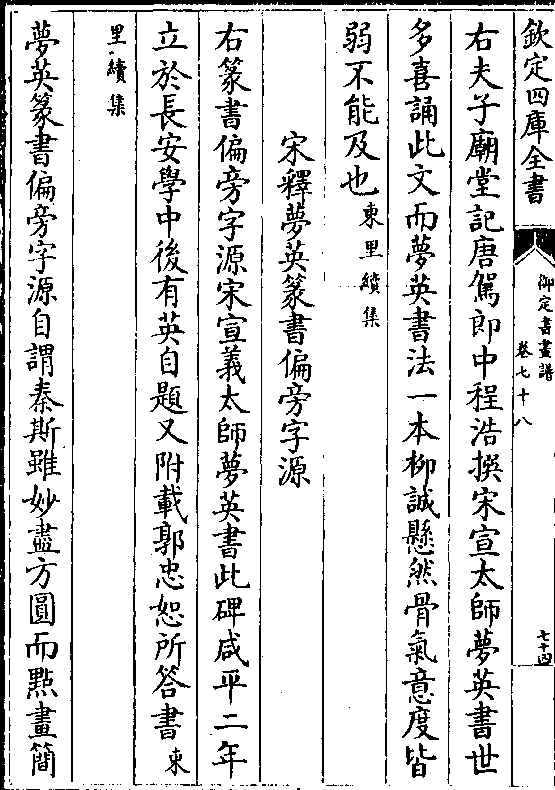 欽定四庫全書
御定書畫譜
卷七十八
七十四
右夫子廟堂記唐駕郎中程浩撰宋宣太師夢英書世
多喜誦此文而夢英書法一本柳誠懸然骨氣意度皆
弱不能及也東里續集
宋釋夢英篆書偏旁字源
右篆書偏旁字源宋宣義太師夢英書此碑咸平二年
立於長安學中後有英自題又附載郭忠恕所答書東
里續集
夢英篆書偏旁字源自謂秦斯雖妙盡方圓而點畫簡